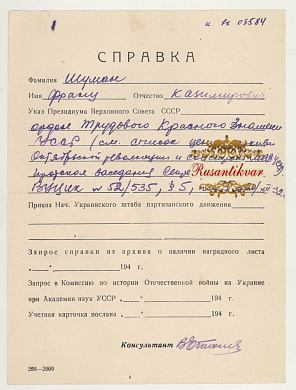 1
и вх 03584
СПРАВКА
Фамилия Шуман
Имя Франц Отчество Казимирович
Указ Президиума Верховного Совета СССР
орден Трудового Красного Знамени
УССР (см. список
Октябрьской революции и
заседания Секр
Rusantikvar
ВУЦИК № 52/535, § 5,
Приказ Нач. Украинского штаба партизанского движения
Запрос справки из архива о наличии наградного листа
„ “ 194 г.
Запрос в Комиссию по истории Отечественной войны на Украине
при Академии наук УССР „ “ 194 г.
Учетная карточка послана „ “ 194 г.
Консультант
298—2000